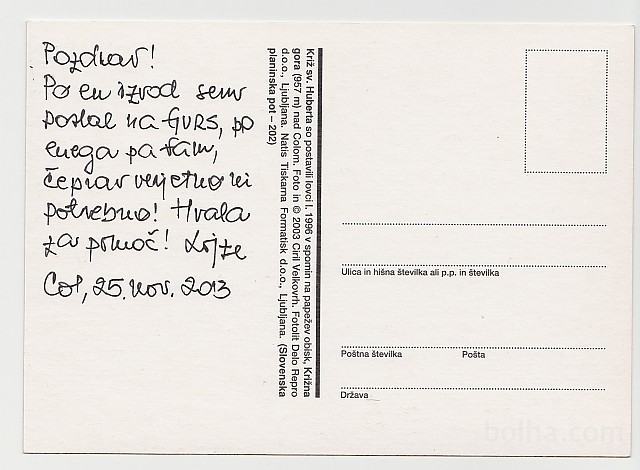 Pozdrav!
Po en izvod sem
poslal na GURS, po
enega pa tam,
čeprav verjetno ni
potrebno! Hvala
za pomoč! Lojze
Col, 25. nov. 2013
Križ sv. Huberta so postavili lovci l. 1996 v spomin na papežev obisk, Križna
gora (957 m) nad Colom. Foto in © 2003 Ciril Velkovrh. Fotolit Delo Repro
d.o.o., Ljubljana. Natis Tiskarna Formatisk d.o.o., Ljubljana. (Slovenska
planinska pot – 202)
Ulica in hišna številka ali p.p. in številka
Poštna številka Pošta
Država
bolha.com